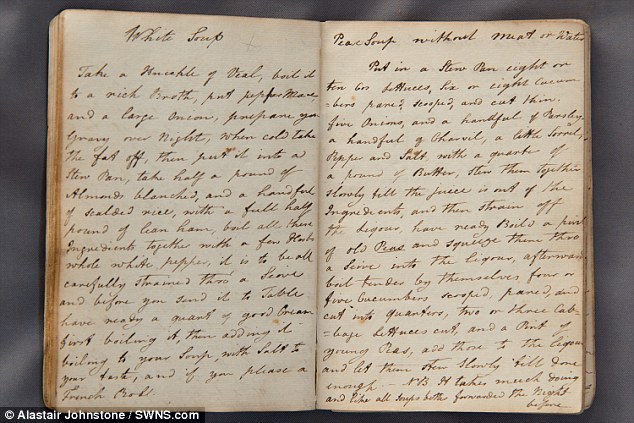 White Soup
Take a Knuckle of Veal, boil it
to a rich Broth, put pepper Mace,
and a large Onion, prepare your
Gravy over Night, when cold take
the fat off, then put it into a
Stew Pan, take half a pound of
Almonds blanched, and a handful
of scalded rice, with a full half
pound of lean ham, boil all these
Ingredients together with a few Herbs
whole white pepper, it is to be all
carefully strained thro a Sieve
and before you send it to Table
have ready a quart of good Cream
first boiling it, then adding it
boiling to your Soup, with Salt to
your taste, and if you please a
French Roll
Peas Soup without Meat or Water
Put in a Stew Pan eight or
ten Cos Lettuces, Six or eight Cucum=
=bers pared, scoped, and cut thin.
five Onions, and a handful of Parsley
a handful of Charvil, a little Sorrel,
Pepper and Salt, with a quarter of
a pound of Butter, stew them together
slowly till the juice is out of the
Ingredients, and then strain off
the Liquor, have ready Boild a pint
of old Peas and squeeze them thro
a Sieve into the Liquor, afterwards
boil tender by themselves four or
five Cucumbers scoped, pared, and
cut into quarters, two or three Cab=
=bage Lettuces cut, and a Pint of
young Peas, add those to the Liquor
and let them stew slowly till done
enough — NB It takes much doing
and like all Soups better forwarded the Night
before
© Alastair Johnstone / SWNS.com